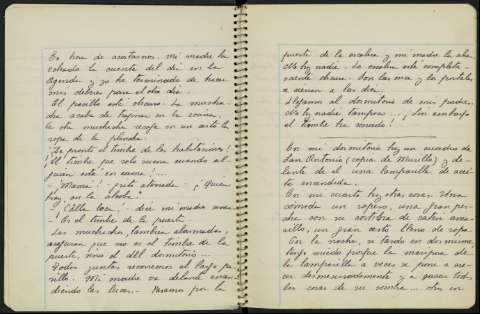 Es hora de acostarnos. Mi madre ha
echado la cuenta del día en la
Agenda y yo he terminado de hacer
mis deberes para el otro día.
El pasillo está obscuro. La mucha-
cha acaba de fregar en la cocina,
la otra muchacha recoge en un cesto la
ropa de la plancha.
¡De pronto el timbre de las habitaciones!
¡El timbre que solo suena cuando al-
guien está en cama!...
- ¡Mamá! grito aterrada - ¿Quién
hay en la alcoba?
- ¡Calla loca! - dice mi madre
- Es el timbre de la puerta -
Las muchachas, también alarmadas,
aseguran que no es el timbre de la
puerta, sino el del dormitorio...
Todos juntos recorremos el largo pa-
sillo. Mi madre va delante encen-
diendo las luces. - Miramos por la
puerta de la escalera y mi madre la abre
No hay nadie. La escalera está completa-
mente obscura. Son las once y la portera
a las diez.
Llegamos al dormitorio de mis padres
No hay nadie tampoco... ¡Sin embargo
el timbre ha sonado!
En mi dormitorio hay un cuadro de
San Antonio (copia de Murillo) y de-
lante de él una lamparilla de acei-
te encendida.
En mi cuarto hay otras cosas: Una
cómoda un ropero, una gran per-
cha con su cortina de satén ama-
rillo, un gran cesto lleno de ropa.
Por la noche, si tardo en dormirme,
luego queda porque la mariposa de
la lamparilla a veces se pone a
desmesuradamente y a sacar todas
las cosas de su sombra...